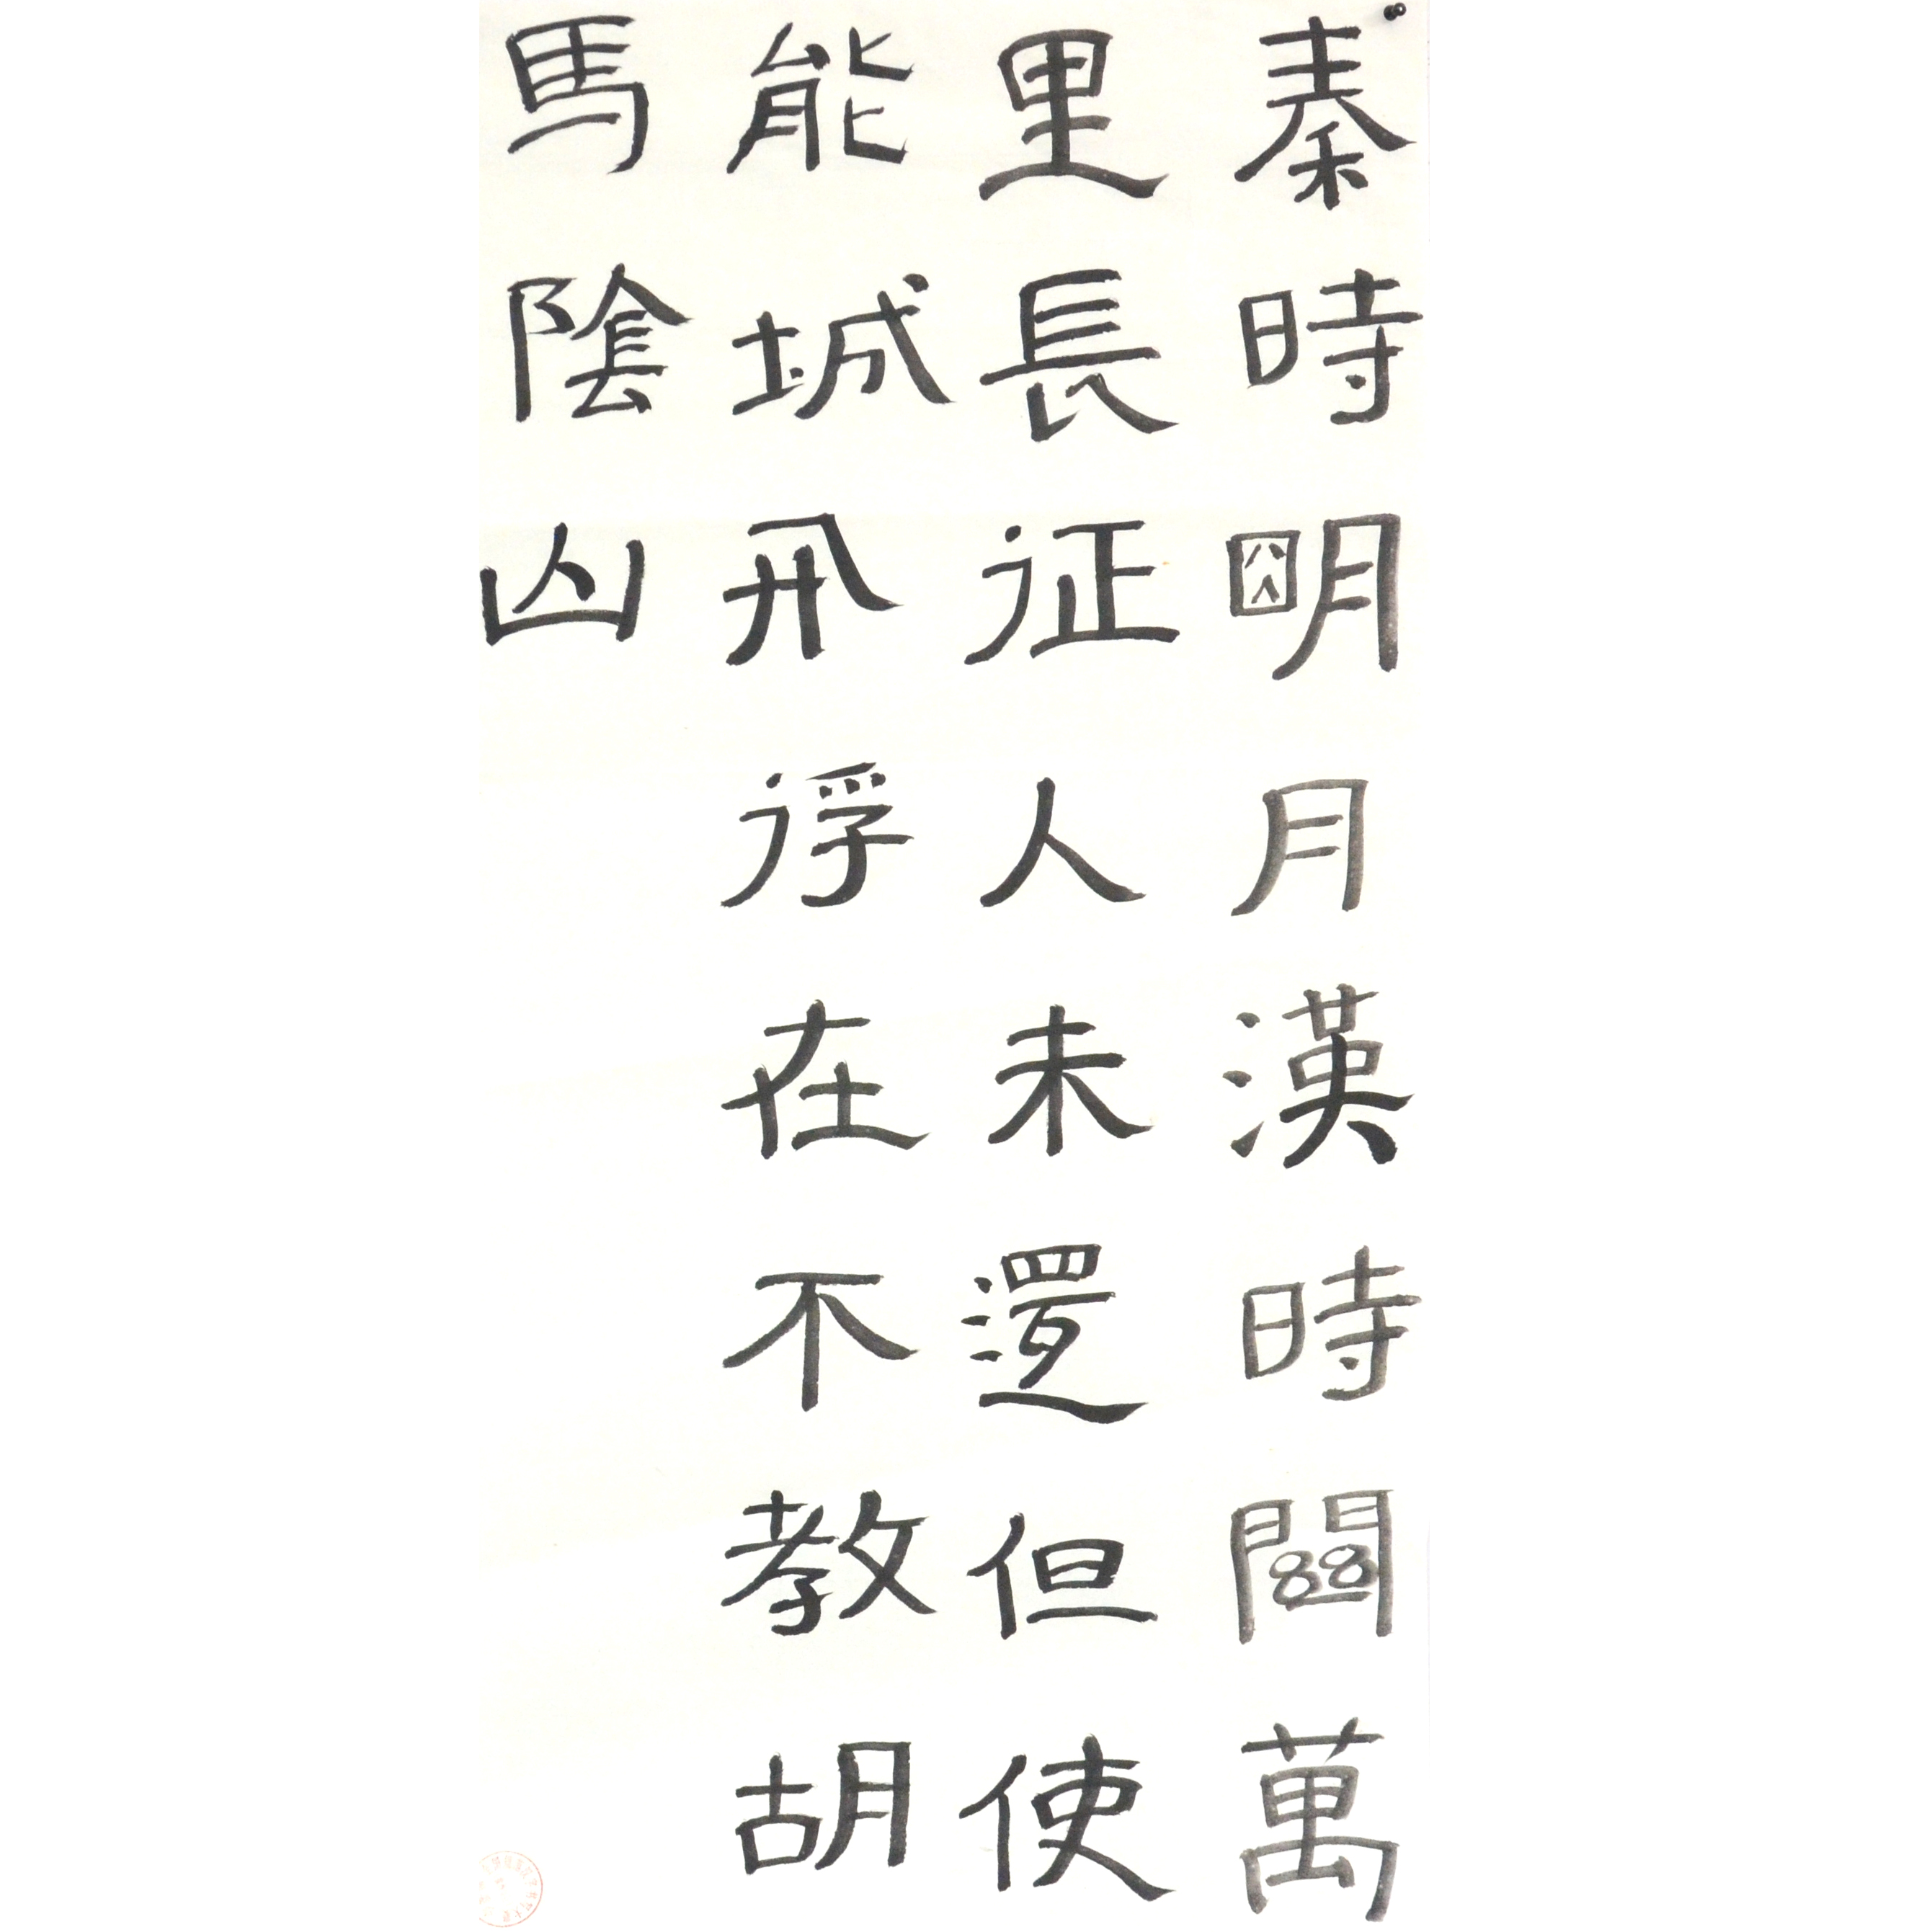 秦時朙月漢時關萬
里長征人未還但使
能城飛在不教胡
馬陰山